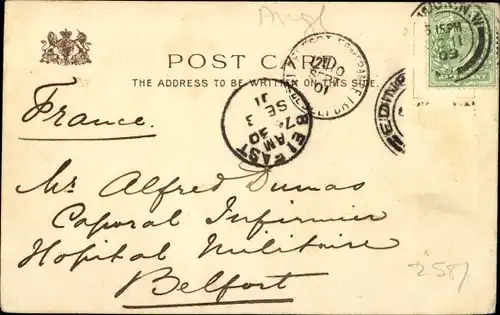 Angl
POST CARD
THE ADDRESS TO BE WRITTEN ON THIS SIDE.
5.15 PM
03
HALFPENNY
BELFAST
7.30 AM
SE 3
France.
Mr Alfred Dumas
Caporal Infirmier
Hopital Militaire
Belfort
258